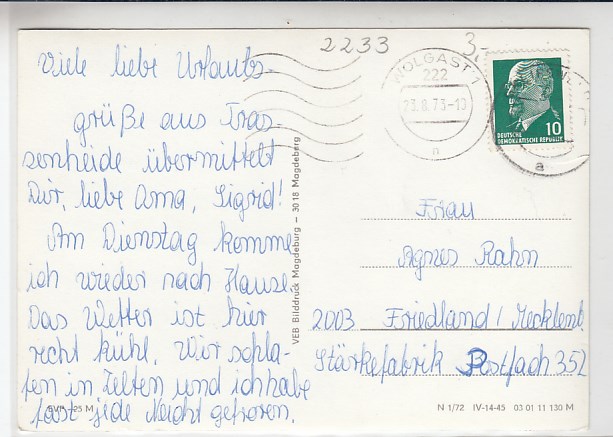 2233
3,-
WOLGAST 1
222
23.8.73-10
a
a
10
DEUTSCHE
DEMOKRATISCHE REPUBLIK
Viele liebe Urlaubs-
grüße aus Tras-
senheide übermittelt
Dir, liebe Oma, Sigrid!
Am Dienstag komme
ich wieder nach Hause.
Das Wetter ist hier
recht kühl. Wir schla-
fen in Zelten und ich habe
fast jede Nacht gefroren.
VEB Bilddruck Magdeburg – 3018 Magdeberg
Frau
Agnes Rahn
2003 Friedland / Mecklenb.
Stärkefabrik Postfach 352
EVP -25 M
N 1/72 IV-14-45 03 01 11 130 M